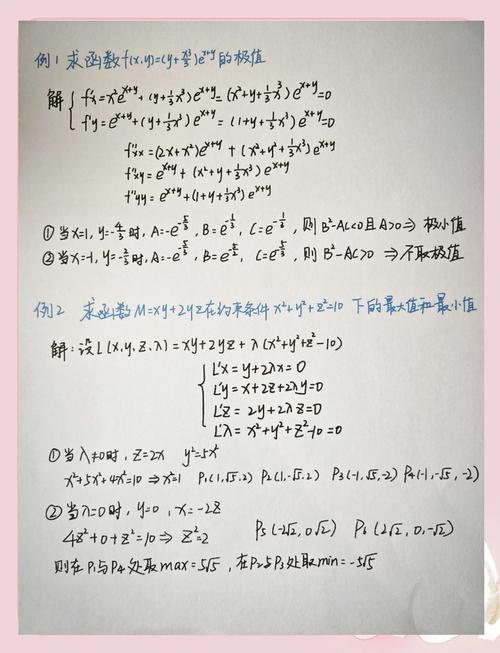 例1 求函数f(x,y)=(y+x³/3)e^{x+y}的极值
解 { f'x=x²e^{x+y}+(y+1/3x³)e^{x+y}=(x²+y+1/3x³)e^{x+y}=0
f'y=e^{x+y}+(y+1/3x³)e^{x+y}=(1+y+1/3x³)e^{x+y}=0
f''xx=(2x+x²)e^{x+y}+(x²+y²+1/3x³)e^{x+y}
f''xy=e^{x+y}+(x²+y+1/3x³)e^{x+y}
f''yy=e^{x+y}+(1+y+1/3x³)e^{x+y}
①当x=1,y=-4/3时,A=-e^{-5/3},B=e^{-1/3},C=e^{-1/6},则B²-AC<0且A>0⇒极小值
②当x=-1,y=-2/3时,A=-e^{-5/3},B=e^{-5/2},C=e^{-5/3},则B²-AC>0⇒不取极值
例2 求函数M=xy+2yz在约束条件x²+y²+z²=10下的最大值和最小值
解:设L(x,y,z,λ)=xy+2yz+λ(x²+y²+z²-10)
{ L'x=y+2λx=0
L'y=x+2z+2λy=0
L'z=2y+2λz=0
L'λ=x²+y²+z²-10=0
①当λ≠0时,z=2x y²=5x²
x²+5x²+4x²=10⇒x²=1 P1(1,√5,2) P2(1,-√5,2) P3(-1,√5,-2) P4(-1,-√5,-2)
②当λ=0时,y=0,x=-2z
4z²+0+z²=10⇒z²=2 P5(-2√2,0√2) P6(2√2,0,-√2)
则在P1与P4处取max=5√5,在P2与P3处取min=-5√5